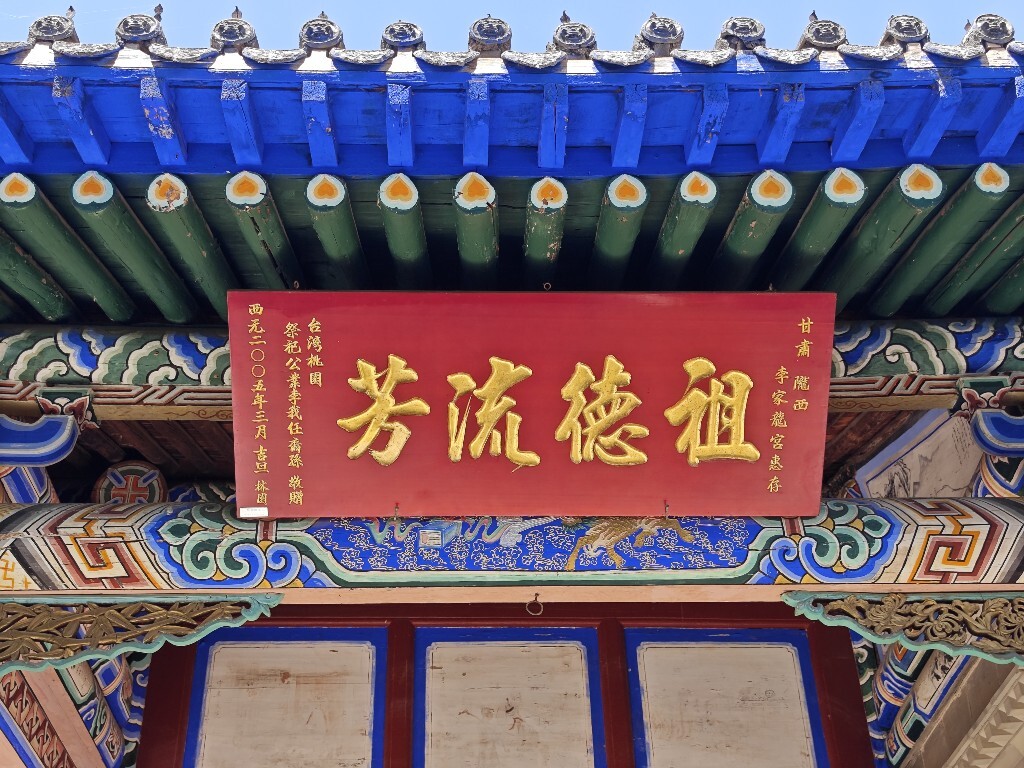 甘肅 隴西
李家龍宮惠存
祖德流芳
台灣桃園
祭祀公業李我任裔孫 敬贈
西元二〇〇五年三月 吉旦 林園